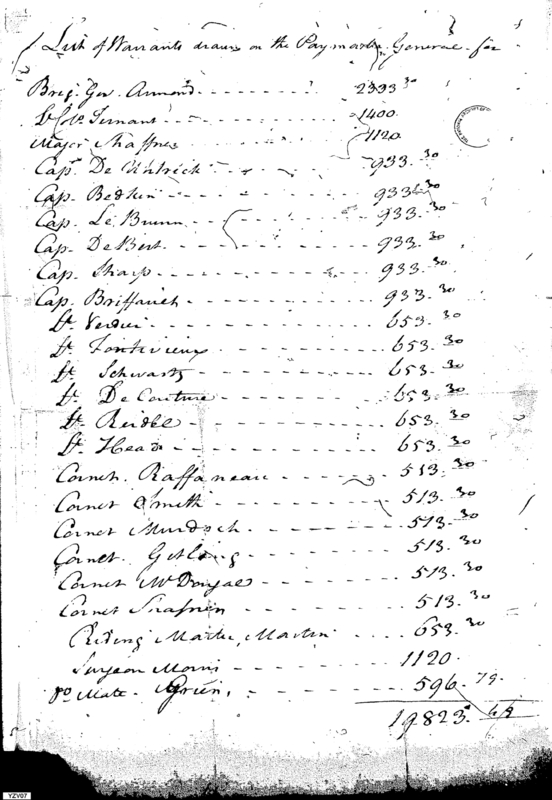 List of Warrants drawn on the Paymaster General for
Brig. Gen. Armand - - - - - - - 2333 30
Lt. Col. Ternant - - - - - - - 1400
Major Shaffner - - - - - - - 1120
Cap. De - - - - - - - 933. 30
Cap. Bedkin - - - - - - - 933 30
Cap. Le Brunn - - - - - - - 933. 30
Cap. De Bert - - - - - - - 933. 30
Cap. Sharp - - - - - - - 933. 30
Cap. Briffault - - - - - - - 933. 30
Lt. Verdier - - - - - - - 653. 30
Lt. Fontevieux - - - - - - - 653. 30
Lt. Schwartz - - - - - - - 653. 30
Lt. De Couture - - - - - - - 653. 30
Lt. Reidle - - - - - - - 653. 30
Lt. Head - - - - - - - 653. 30
Cornet. Raffaneau - - - - - 513. 30
Cornet Smith - - - - - - - 513. 30
Cornet Murdoch - - - - - - - 513. 30
Cornet. - - - - - - - 513. 30
Cornet McDougal - - - - - - - 513. 30
Cornet - - - - - - - 513. 30
Riding Master, Martin - - - - 653. 30
Surgeon Morris - - - - - - - 1120.
Do Mate. Green, - - - - - - - 596. 79.
19823.
YZV07